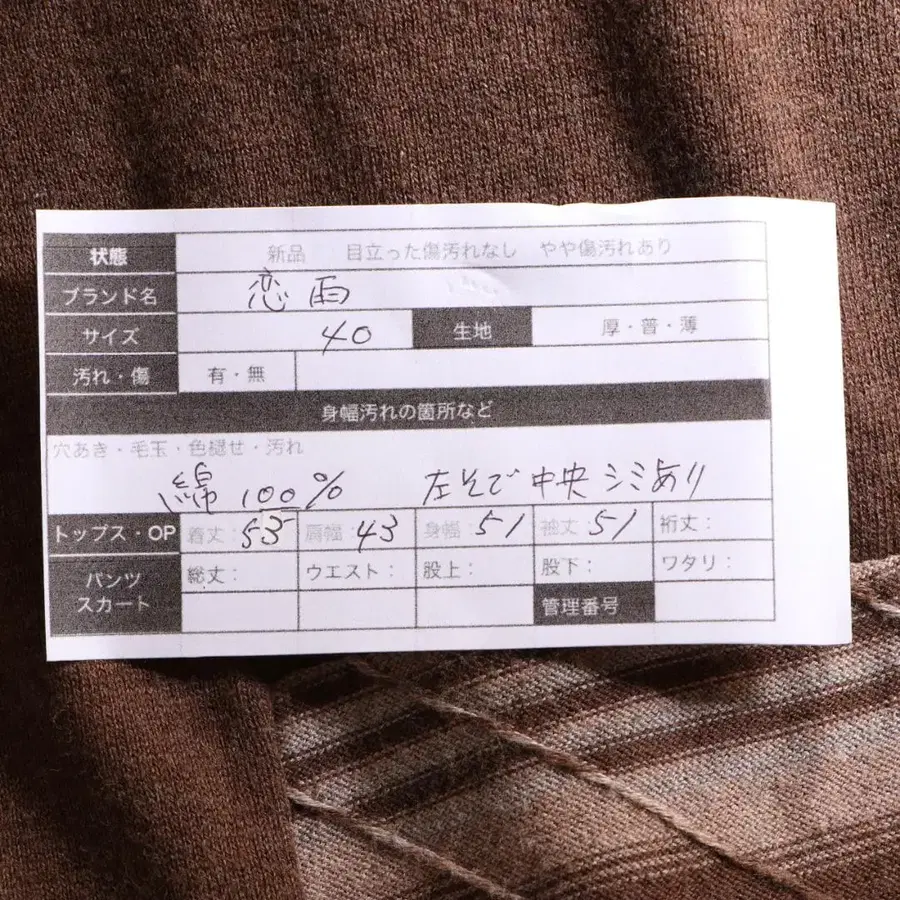 状態 新品 目立った傷汚れなし やや傷汚れあり
ブランド名 恋雨
サイズ 40 生地 厚・普・薄
汚れ・傷 有・無
身幅汚れの箇所など
穴あき・毛玉・色褪せ・汚れ
綿 100% 左そで中央シミあり
トップス・OP 着丈:53 肩幅:43 身幅:51 袖丈:51 裄丈:
パンツ 総丈: ウエスト: 股上: 股下: ワタリ:
スカート 管理番号